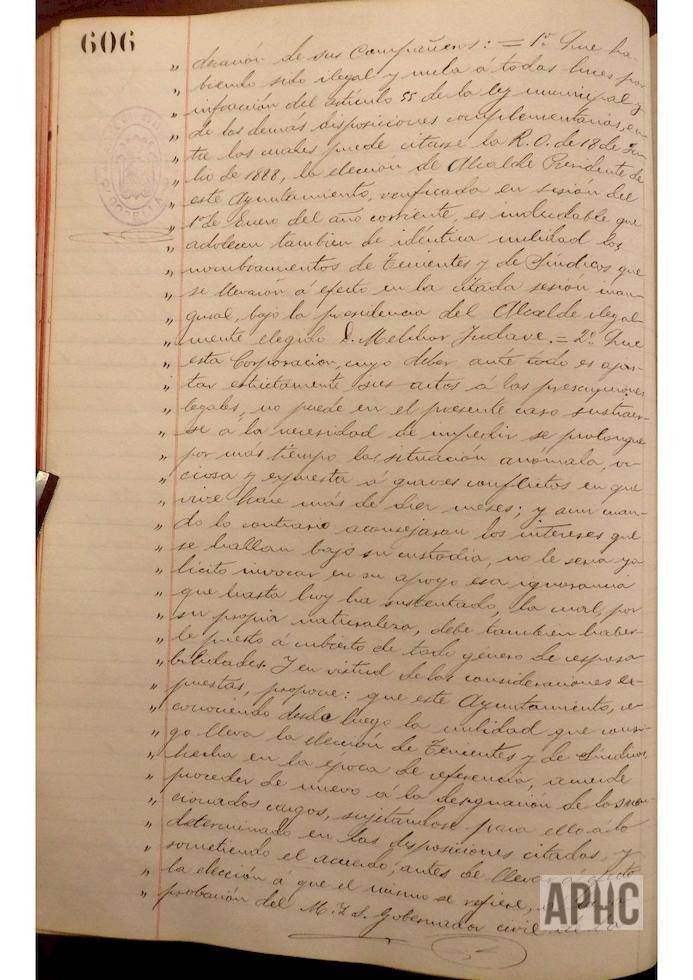 606
" deración de sus Compañeros: = 1º Que ha-
" biendo sido ilegal y nula á todas luces por
" infracción del artículo 55 de la ley municipal y
" de las demás disposiciones complementarias, en-
" tre las cuales puede citarse la R. O. de 18 de Ju-
" lio de 1888, la elección de Alcalde Presidente de
" este Ayuntamiento, verificada en sesión del
" 1º de Enero del año corriente, es indudable que
" adolecen tambien de idéntica nulidad los
" nombramientos de Tenientes y de Síndicos que
" se llevaron á efecto en la citada sesión inau-
" gural, bajo la presidencia del Alcalde ilegal-
" mente elegido D. Melchor = 2º Que
" esta Corporación, cuyo deber ante todo es ajus-
" tar estrictamente sus actos á las prescripciones
" legales, no puede en el presente caso sustraer-
" se a la necesidad de impedir se prolongue
" por más tiempo la situación anómala, vi-
" ciosa y expuesta á graves conflictos en que
" vive hace más de seis meses; y aun cuan-
" do lo contrario aconsejaran los intereses que
" se hallan bajo su custodia, no le seria ya
" lícito invocar en su apoyo esa ignorancia
" que hasta hoy ha sustentado, la cual, por
" su propia naturaleza, debe tambien haber-
" le puesto á cubierto de todo género de responsa
" bilidades. Y en virtud de las consideraciones ex-
" puestas, propone: que este Ayuntamiento, re-
" conociendo desde luego la nulidad que consi-
" go lleva la elección de Tenientes y de Síndicos
" hecha en la época de referencia, acuerde
" proceder de nuevo á la designación de los men-
" cionados cargos, sujetándose para ello á lo
" determinado en las disposiciones citadas, y
" sometiendo el acuerdo, antes de llevar á efecto
" la elección á que el mismo se refiere,
" probación del M. I. S. Gobernador civil
APHC